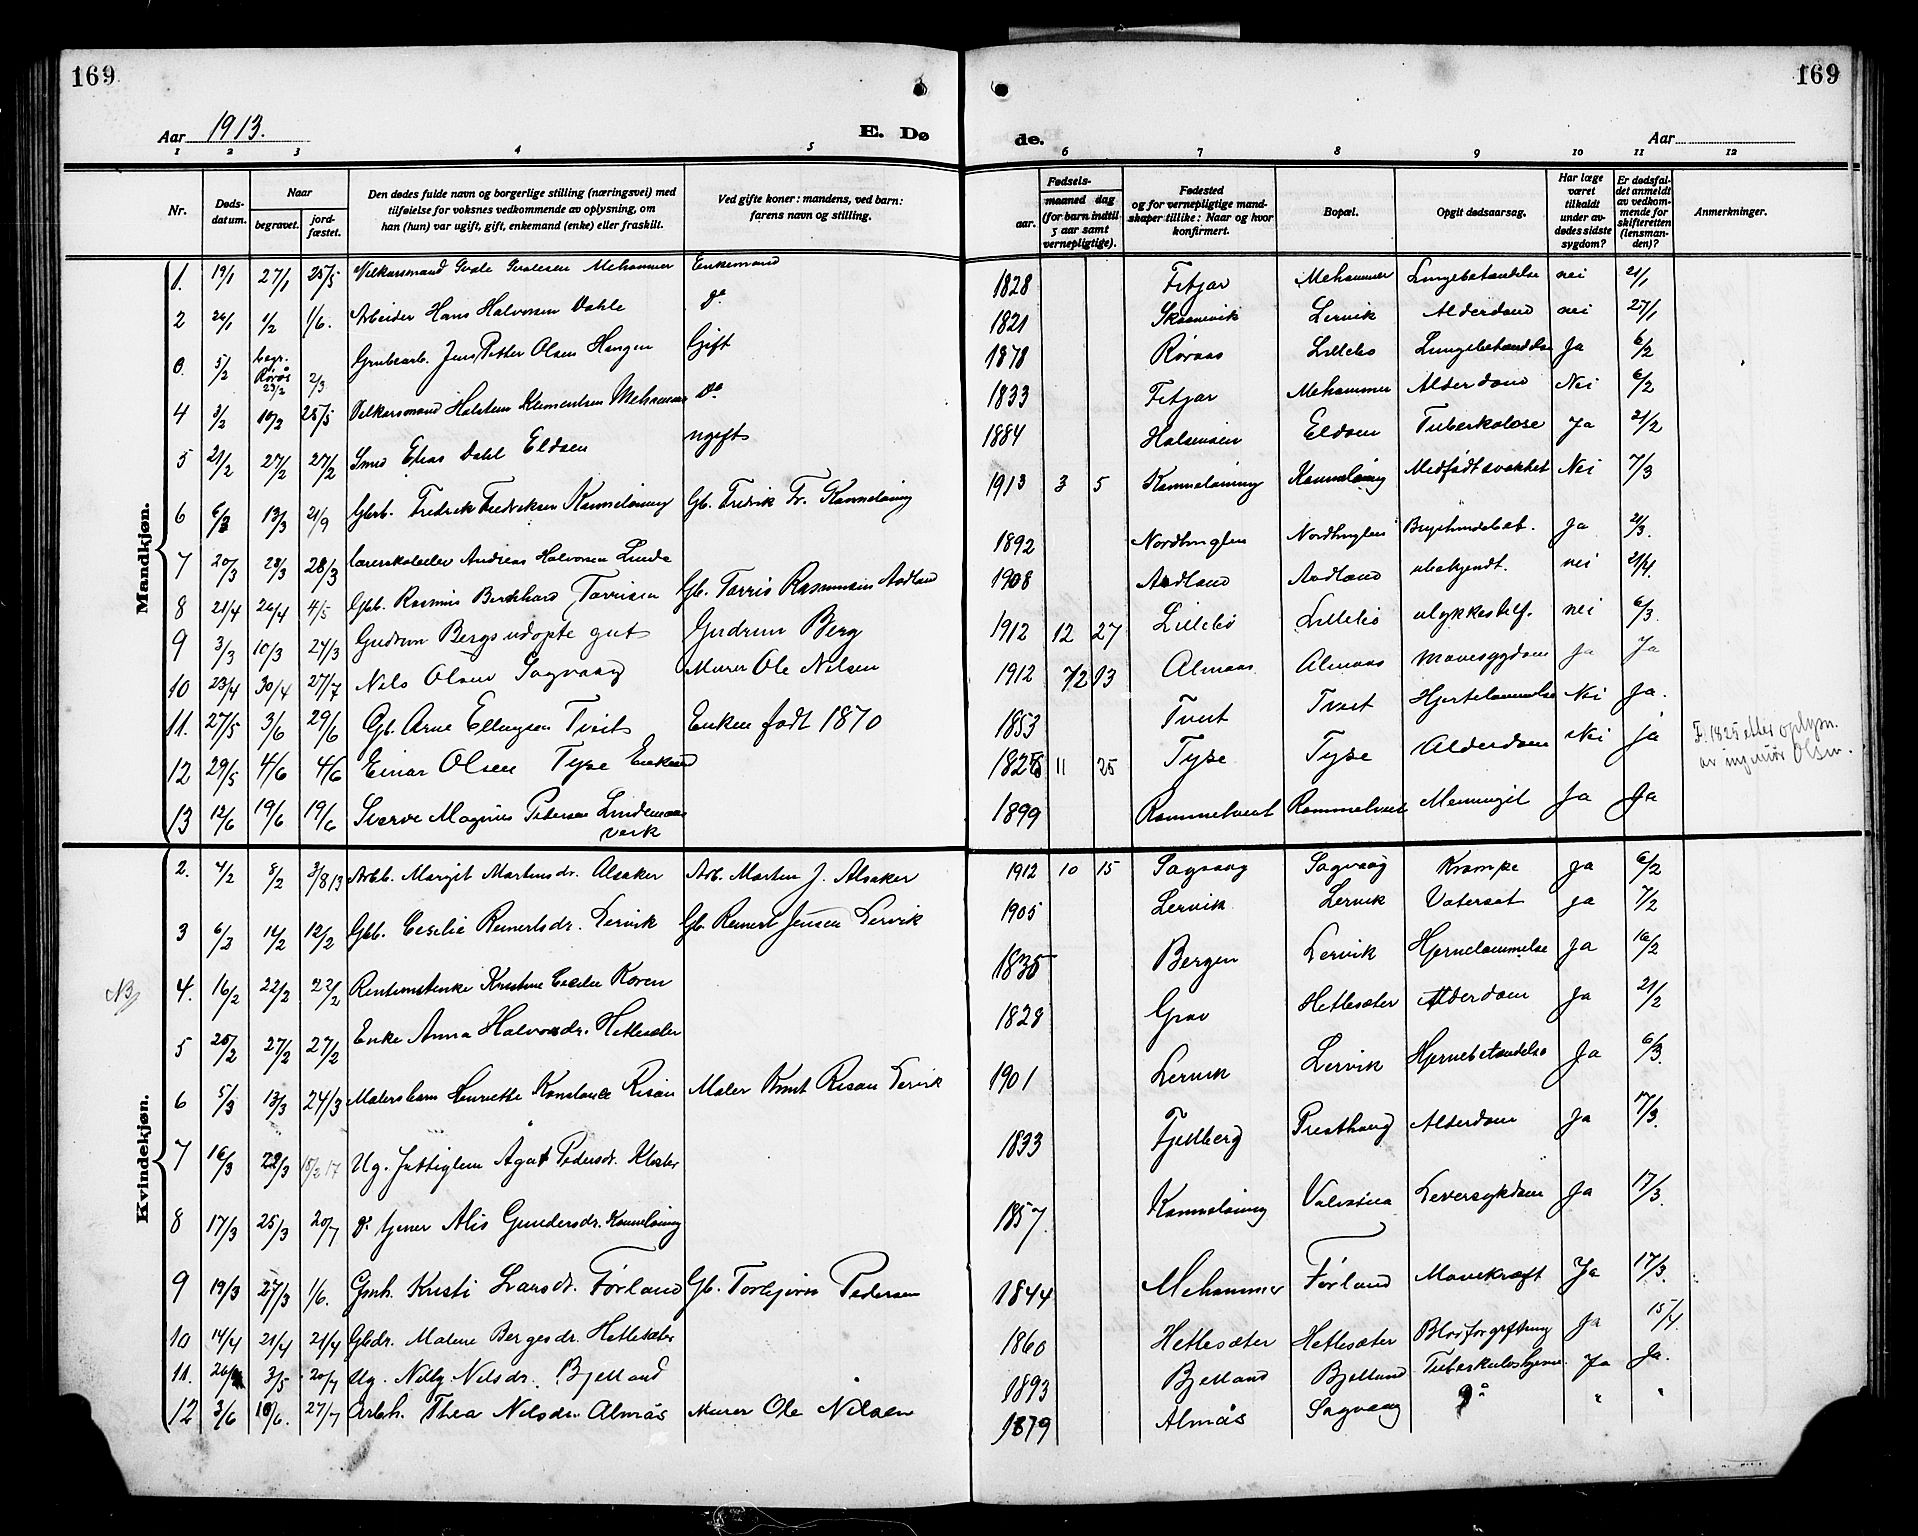 169
169
Aar 1913.
E. Dø
de.
Aar
1 2 3 4 5 6 7 8 9 10 11 12
Nr.
Døds-datum.
Naar
begravet.
jord-fæstet.
Den dødes fulde navn og borgerlige stilling (næringsvei) med
tilføielse for voksnes vedkommende av oplysning, om
han (hun) var ugift, gift, enkemand (enke) eller fraskilt.
Ved gifte koner: mandens, ved barn:
farens navn og stilling.
Fødsels-
aar.
maaned dag
(for barn indtil
5 aar samt
vernepligtige).
Fødested
og for vernepligtige mand-
skaper tillike: Naar og hvor
konfirmert.
Bopæl.
Opgit dødsaarsag.
Har læge
været
tilkaldt
under av-
dødes sidste
sygdom?
Er dødsfal-
det anmeldt
av vedkom-
mende for
skifteretten
(lensman-
den)?
Anmerkninger.
Mandkjøn.
1. 19/1 27/1 25/5 Vilkaarsmand Mehammer Enkemand 1828 Fitjar Mehammer Lungebetændelse nei 21/1
2 1/2 1/6. Arbeider Hans Halvorsen Dahle do 1821 Skaanevik Lervik Alderdom nei 27/1
5/2 begr. Røros 23/2 2/3 Grubearb. Jens Petter Olsen Haugen Gift 1878 Røraas Lillebø Lungebetændelse Ja 6/2
4 3/2 10/2 25/5 Vilkaarsmand Halstein Klementsen Mehammer do 1833 Fitjar Mehammer Alderdom Nei 6/2
5 21/2 27/2 27/2 Smed Elias Dahl Eldøen ugift 1884 Halsenøen Eldøen Tuberkulose Ja 21/2
6 6/3 13/3 21/9 Gbrb. Fredrik Fredriksen Kanneløning Gb. Fredrik Fr. Kanneløning 1913 3 5 Kanneløning Kanneløning Medfødt svakhet Nei 7/3
7 20/3 28/3 28/3 Lærerskoleelev Andreas Halvorsen Lunde 1892 Nordhuglen Nordhuglen Ja 21/3.
8 21/4 26/4 4/5 Gbb. Rasmus Berthard Torrisen Gb. Torris Rasmussen Aadland 1908 Aadland Aadland ubekjendt. nei 21/4.
9 3/3 10/3 24/3 Gudrun Bergs udøpte gut Gudrun Berg 1912 12 27 Lillebø Lillebø ulykkestilf. nei 6/3.
10 23/4 30/4 27/7 Nils Olsen Sagvaag Murer Ole Nilsen 1912 7/2 13 Almaas Almaas Mavesygdom Ja Ja
11. 27/5 3/6 29/6 Gb. Arne Ellingsen Tveit Enken født 1870 1853 Tveit Tveit Hjertelammelse Nei Ja.
12 29/5 4/6 4/6 Einar Olsen Tyse Enkem 11 25 Tyse Tyse Alderdom Nei Ja F. 1825 etter oplysn.
av ingeniør Olsen.
13 12/6 19/6 19/6 Sverre Magnus Pedersen Lindemans
verk 1899 Rommetveit Rommetveit Meningit Ja Ja
Kvindekjøn.
2. 4/2 8/2 3/8 13 Arbb. Margit Martinsdr. Alsaker Arb. Martin J. Alsaker 1912 10 15 Sagvaag Sagvaag Krampe Ja 6/2
3 6/2 14/2 12/2 Gbb. Cecilie Reinertsdr. Lervik Gb. Reinert Jensen Lervik 1905 Lervik Lervik Vatersot Ja 7/2
NB 4. 16/2 22/2 22/2 Kristine Cecilie Koren 1835 Bergen Lervik Hjernelammelse Ja 16/2
5 20/2 27/2 27/2 Enke Anna Halvorsdr. Hetlesæter 1828 Grov Hetlesæter Alderdom Ja 21/2
6 5/3 13/3 24/3 Malersbarn Henriette Konstance Risøen Maler Knut Risøen Lervik 1901 Lervik Lervik Hjernebetændelse Ja 6/3.
7 16/3 22/3 15/2 17 Ug. Agat Pedersdr. Kloster 1833 Fjelberg Presthaug Alderdom Ja 17/3.
8 17/3 25/3 20/7 do tjener Alis Gundersdr. Kanneløning 1857 Kanneløning Valvatna Leversykdom Ja 17/3.
9 19/3 27/3 1/6. Gmk. Kristi Larsdr. Førland Gb. Torbjørn Pedersen 1844 Mehammer Førland Mavekræft Ja 17/3.
10 14/4 21/4 21/4 Gbdr. Malene Bergesdr. Hetlesæter 1860 Hetlesæter Hetlesæter Blodforgiftning Ja 15/4.
11. 3/5 20/7 Ug. Nelly Nilsdr. Bjelland 1893 Bjelland Bjelland Ja Ja.
12 3/6 10/6. 27/7 Arbk. Thea Nilsdr. Almås Murer Ole Nilsen 1879 Almås Sagvaag do " "